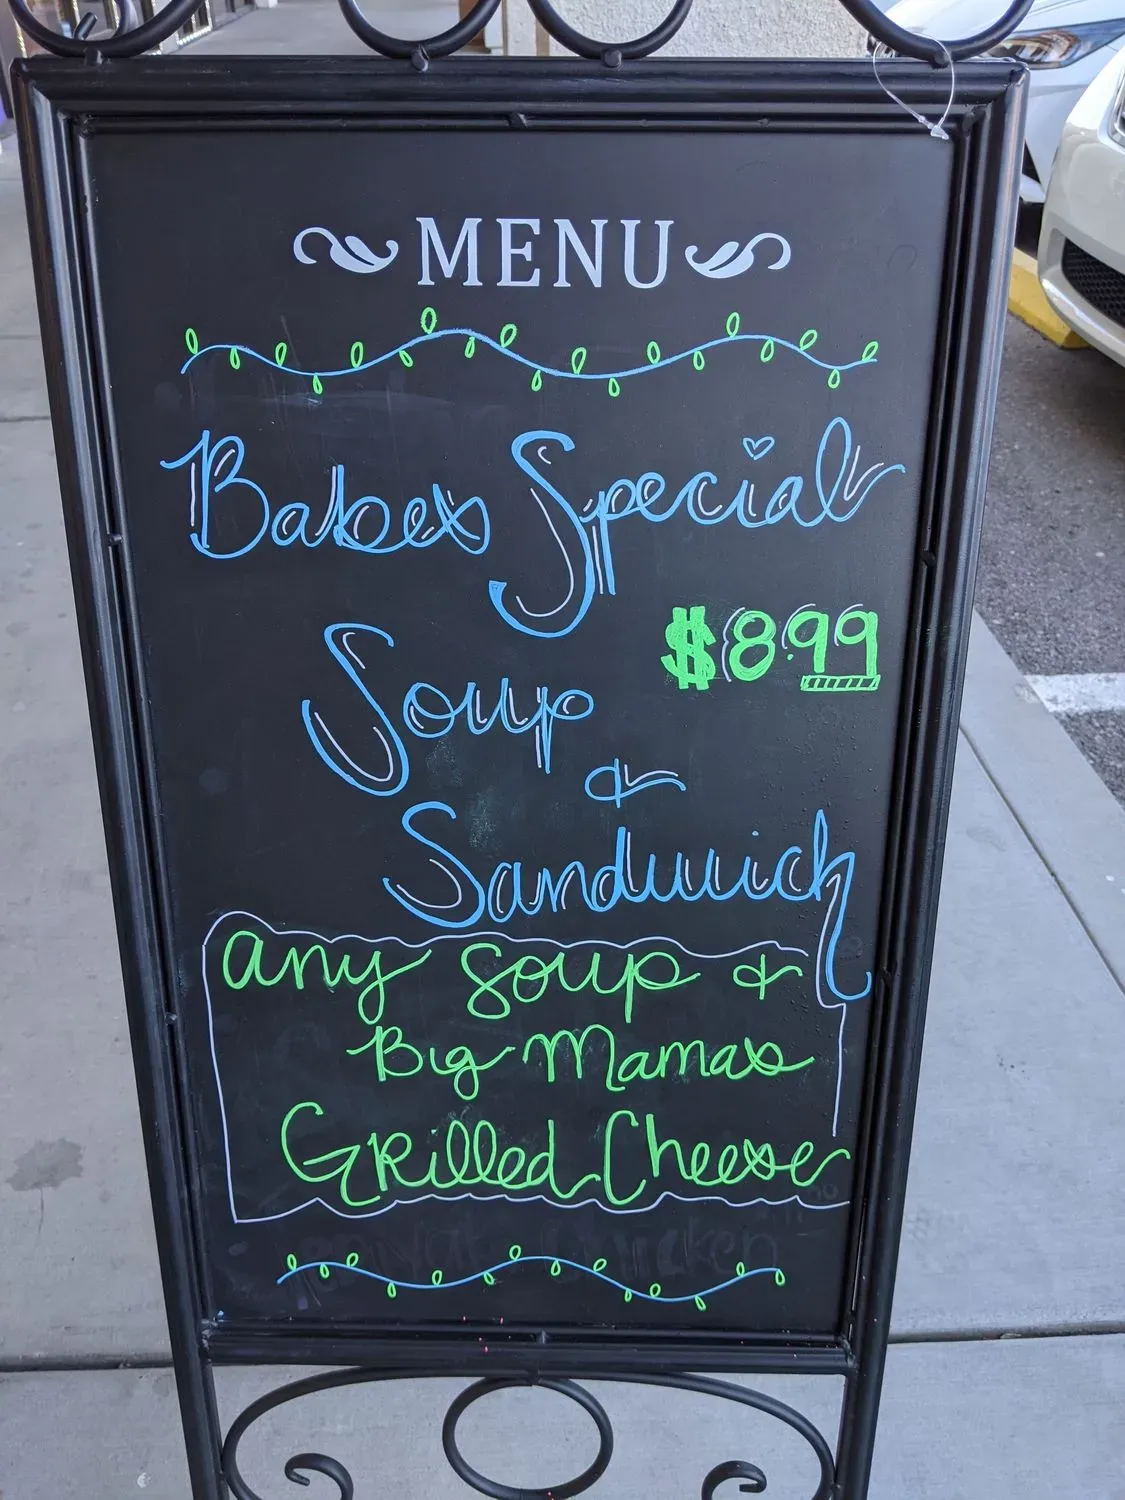 MENU
Babes Special
$8.99
Soup
&
Sandwich
any soup &
Big Mamas
Grilled Cheese
chicken